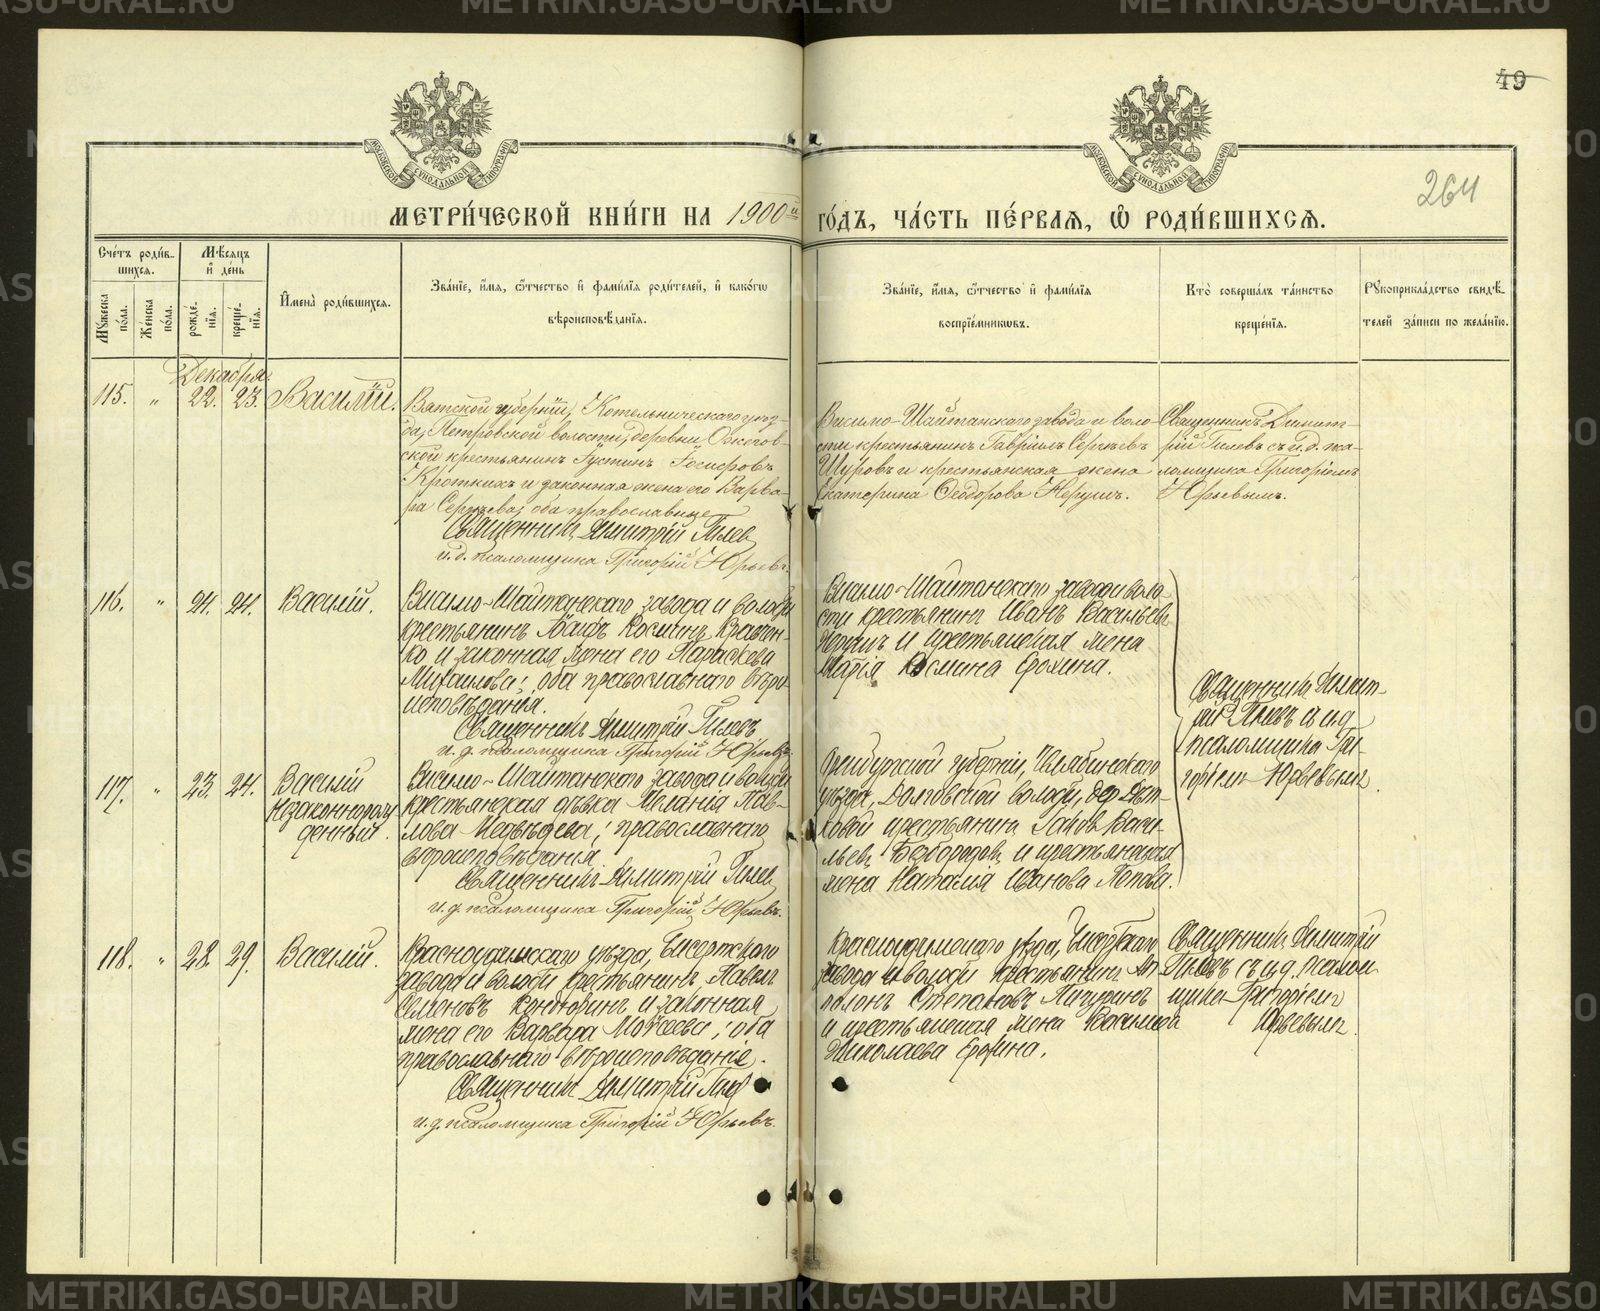 METRIKI.GASO-URAL.RU
49
264
МОСКОВСКОЙ СѴНОДАЛЬНОЙ ТИПОГРАФІИ
МОСКОВСКОЙ СѴНОДАЛЬНОЙ ТИПОГРАФІИ
МЕТРИ́ЧЕСКОЙ КНИ́ГИ НА 1900й ГО́ДЪ, ЧА́СТЬ ПЕ́РВАѦ, Ѡ РОДИ́ВШИХСѦ.
Сче́тъ роди́вшихсѧ.
Мꙋжеска по́ла.
Же́нска по́ла.
Мѣ́сѧцъ и҆ де́нь
рожде́нїѧ.
креще́нїѧ.
И҆мена̀ роди́вшихсѧ.
Зва́нїе, и҆́мѧ, ѻ҆́тчество и҆ фами́лїѧ роди́телей, и҆ како́гѡ
вѣроисповѣ́данїѧ.
Зва́нїе, и҆́мѧ, ѻ҆́тчество и҆ фами́лїѧ
воспрїе́мникѡвъ.
Кто̀ соверша́лъ та́инство
креще́нїѧ.
Рꙋкоприкла́дство свидѣ́телей
за́писи по жела́нїю.
Декабря.
115. " 22. 23. Василій.
Вятской губерніи, Котельническаго уѣзда,
Петровской волости, деревни Ожеговской
крестьянинъ Іустинъ Іосифовъ
Кроткихъ и законная жена его Варвара
Сергѣева, оба православные
Священникъ Димитрій Гилевъ
и. д. псаломщика Григорій Юрьевъ.
Висимо-Шайтанскаго завода и волости
крестьянинъ Гавріилъ Сергѣевъ
Щуровъ и крестьянская жена
Екатерина Ѳеодорова Нерушъ.
Священникъ Димитрій
Гилевъ съ и. д. псаломщика
Григоріемъ
Юрьевымъ.
116. " 24. 24. Василій.
Висимо-Шайтанскаго завода и волости
крестьянинъ Косминъ Кравченко
и законная жена его Параскева
Михаилова; оба православнаго вѣроисповѣданія.
Священникъ Димитрій Гилевъ
и. д. псаломщика Григорій Юрьевъ.
Висимо-Шайтанскаго завода и волости
крестьянинъ Иванъ Васильевъ
Нерушъ и крестьянская жена
Марія Космина Ерохина.
Священникъ Димитрій
Гилевъ съ и. д.
псаломщика Григоріемъ
Юрьевымъ.
117. " 23. 24. Василій
незаконнорожденный.
Висимо-Шайтанскаго завода и волости
крестьянская дѣвка Меланія Павлова
Медвѣдева; православнаго
вѣроисповѣданія.
Священникъ Димитрій Гилевъ
и. д. псаломщика Григорій Юрьевъ.
Оренбургской губерніи, Челябинскаго
уѣзда, Долговской волости, дер.
крестьянинъ Васильевъ
Безбородовъ и крестьянская
жена Наталія Иванова Попова.
118. " 28. 29. Василій.
Красноуфимскаго уѣзда, Бисертскаго
завода и волости крестьянинъ Павелъ
Семеновъ Кондюринъ и законная
жена его Варвара Моѵсеева; оба
православнаго вѣроисповѣданія.
Священникъ Димитрій Гилевъ
и. д. псаломщика Григорій Юрьевъ.
Красноуфимскаго уѣзда, Бисертскаго
завода и волости крестьянинъ
Степановъ Пичугинъ
и крестьянская жена
Николаева Ерохина.
Священникъ Димитрій
Гилевъ съ и. д. псаломщика
Григоріемъ
Юрьевымъ.